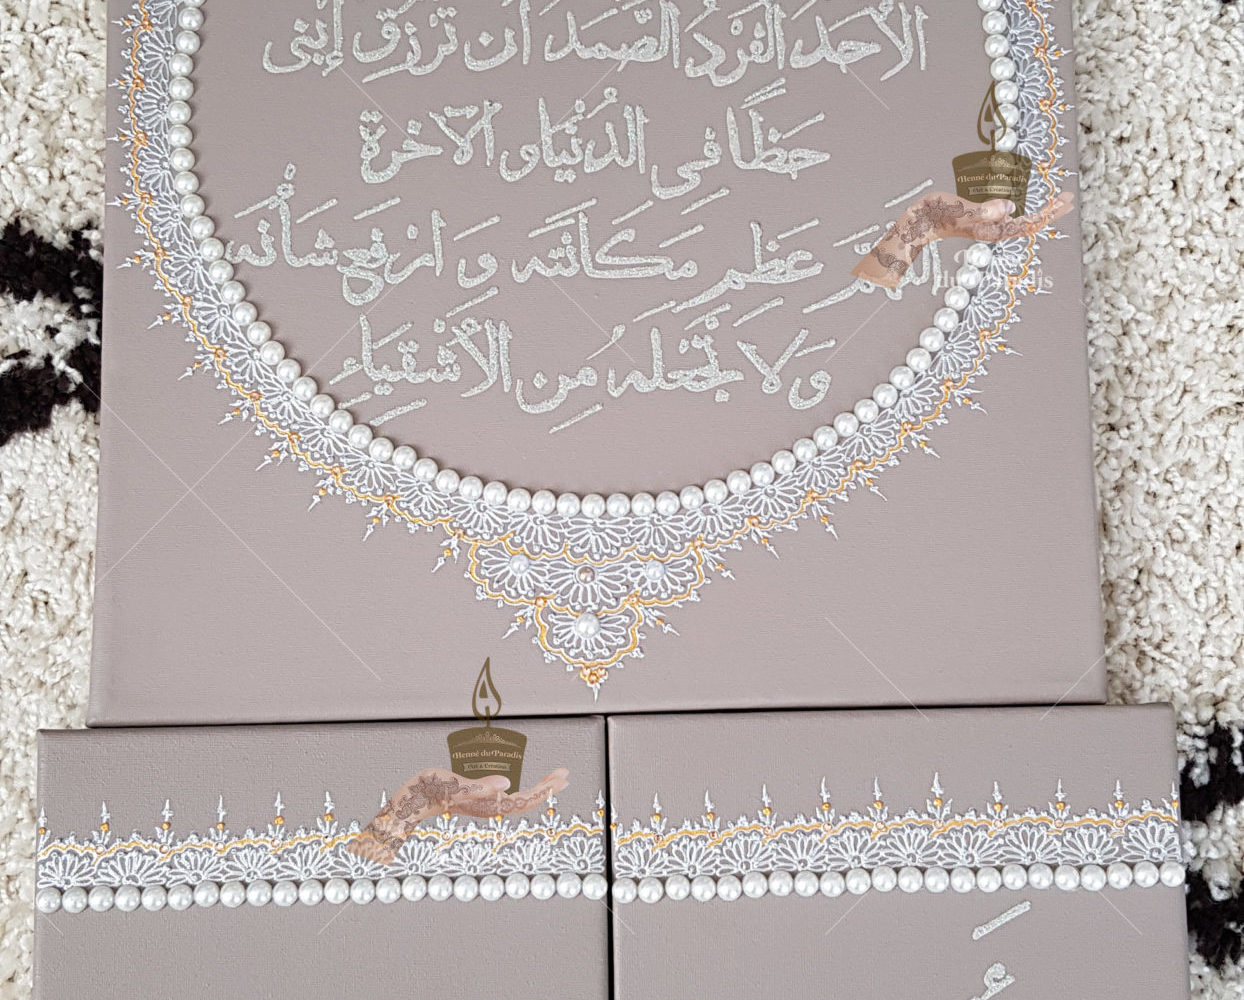 الأحد الفرد الصمد أن ترزق إبني
حظا في الدنيا و الآخرة
اللهم عظم مكانته و ارفع شأنه
و لا تجعله من الأشقياء
Henné du Paradis
Art & Création
Henné du Paradis
Art & Création